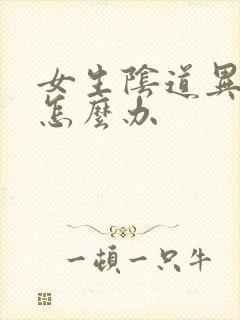 女生陰道異
怎麼办
一頓一只牛